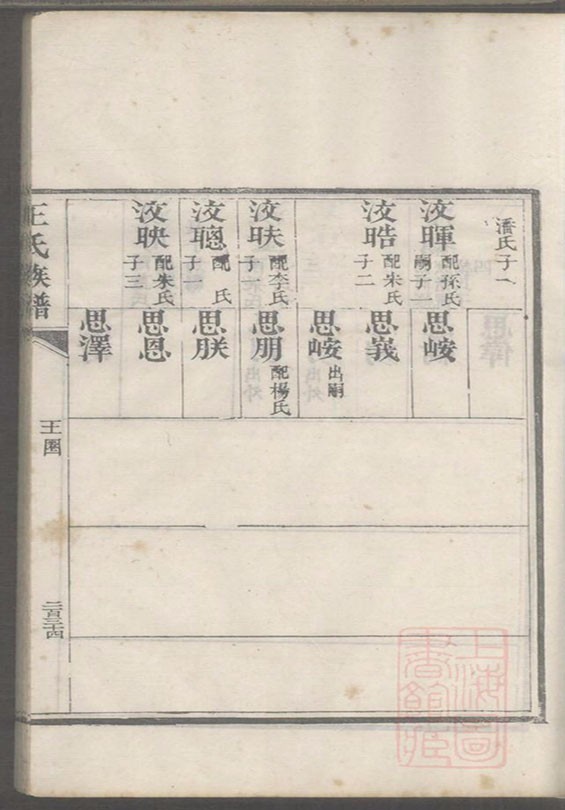 潘氏子一
汶暉 配孫氏 嗣子一
思峖
汶晧 配朱氏 子二
思義
思峖 出嗣
汶昳 配李氏 子一
思朋 配楊氏
汶聰 配 氏 子一
思朕
汶映 配朱氏 子三
思恩
思澤
王氏族譜
王圈
二百三十四
上海圖書館藏